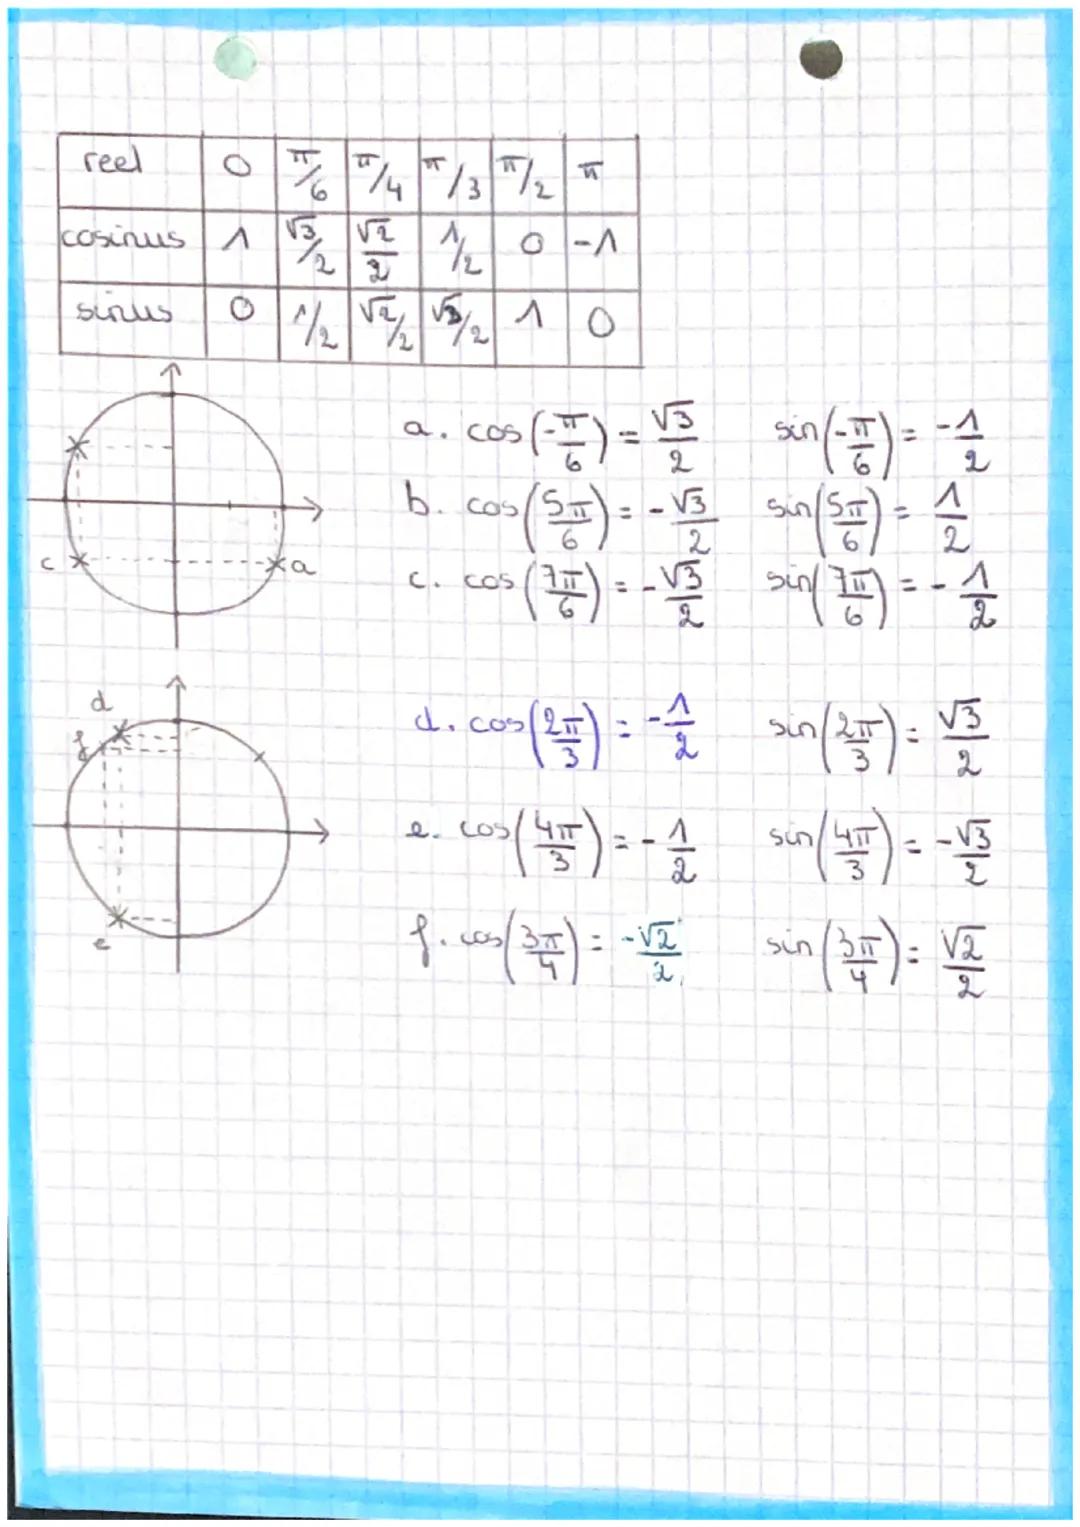 reel 0 π/6 π/4 π/3 π/2 π
cosinus 1 √3/2 √2/2 1/2 0 -1
sinus 0 1/2 √2/2 √3/2 1 0
a. cos(-π/6) = √3/2 sin(-π/6) = -1/2
b. cos(5π/6) = -√3/2 sin(5π/6) = 1/2
c a
c. cos(7π/6) = -√3/2 sin(7π/6) = -1/2
d
d. cos(2π/3) = -1/2 sin(2π/3) = √3/2
f
e. cos(4π/3) = -1/2 sin(4π/3) = -√3/2
e
f. cos(3π/4) = -√2/2 sin(3π/4) = √2/2